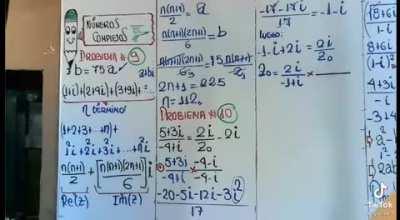 NÚMEROS
COMPLEJOS
PROBLEMA 9
b = 75a
a+bi
(1+i)+(2+4i)+(3+9i)+...=
n términos
(1+2+3+...+n)+
1²i+2²i+3²i+...+n²i
n(n+1)/2 + [n(n+1)(2n+1)/6] i
Re(z) Im(z)
n(n+1)/2 = a
n(n+1)(2n+1)/6 = b
n(n+1)(2n+1)/6 = 75 n(n+1)/2
2n+1 = 225
n = 112
PROBLEMA 10
5+3i/-4+i = 2i/z₀ - 2i
5+3i/-4+i × -4-i/-4-i
-20-5i-12i-3i²/17
-17-17i/17 = -1-i
luego:
-1-i+2i = 2i/z₀
z₀ = 2i/-1+i ×
8+6i
(1-i)²
4+3i
-i
-3+4
TikTok